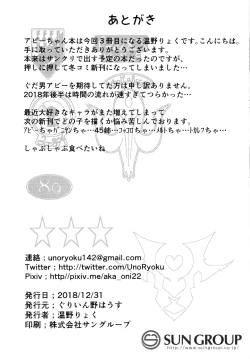 あとがき
アビーちゃん本は今回3冊目になる温野りょくです。こんにちは。
手に取っていただきありがとうございます。
本来はサンクリで出す予定の本だったのですが、
押しに押して冬コミ新刊になってしまいました…
ぐだ男アビーを期待してた方は申し訳ありません。
2018年後半は時間の流れが速すぎてつらかった…
最近大好きなキャラがまた増えてしまって
次の新刊でどの子を描くか悩み苦しんでおります。
しゃぶしゃぶ食べたいね
連絡：unoryoku142@gmail.com
Twitter；http://twitter.com/UnoRyoku
Pixiv；http://pixiv.me/aka_oni22
発行日；2018/12/31
発行元；ぐりいん野はうす
発行者；温野りょく
印刷；株式会社サングループ
SUN GROUP